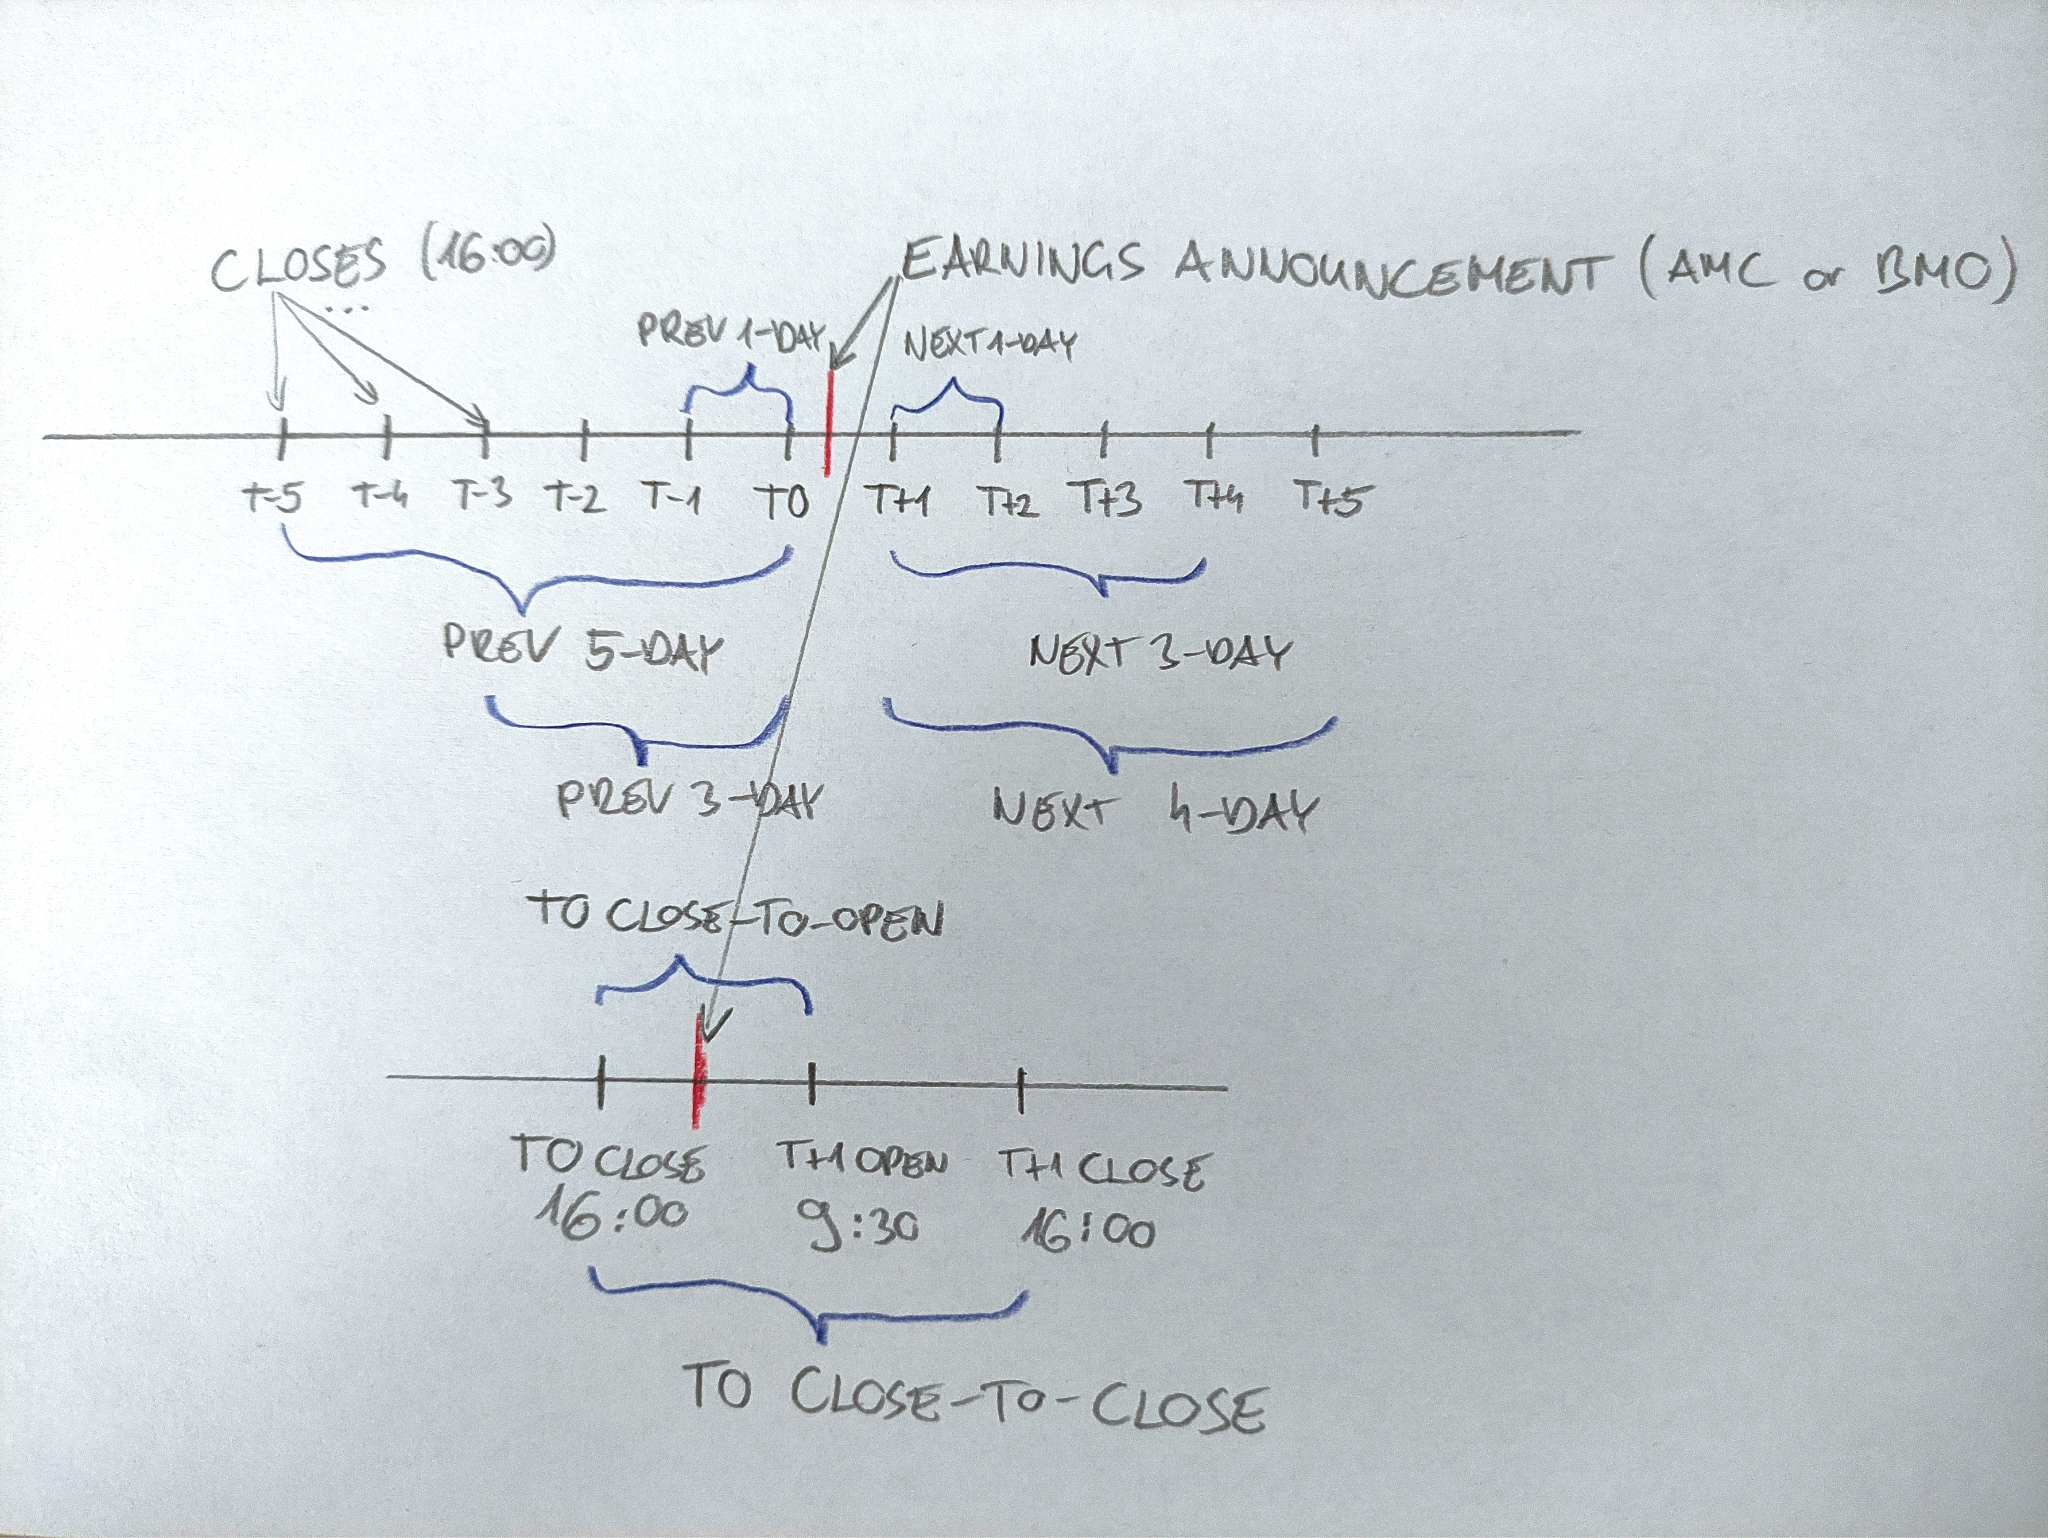 CLOSES (16:00)
...
EARNINGS ANNOUNCEMENT (AMC or BMO)
PREV 1-DAY
NEXT 1-DAY
T-5 T-4 T-3 T-2 T-1 T0 T+1 T+2 T+3 T+4 T+5
PREV 5-DAY
NEXT 3-DAY
PREV 3-DAY
NEXT 4-DAY
T0 CLOSE-TO-OPEN
T0 CLOSE T+1 OPEN T+1 CLOSE
16:00 9:30 16:00
T0 CLOSE-TO-CLOSE